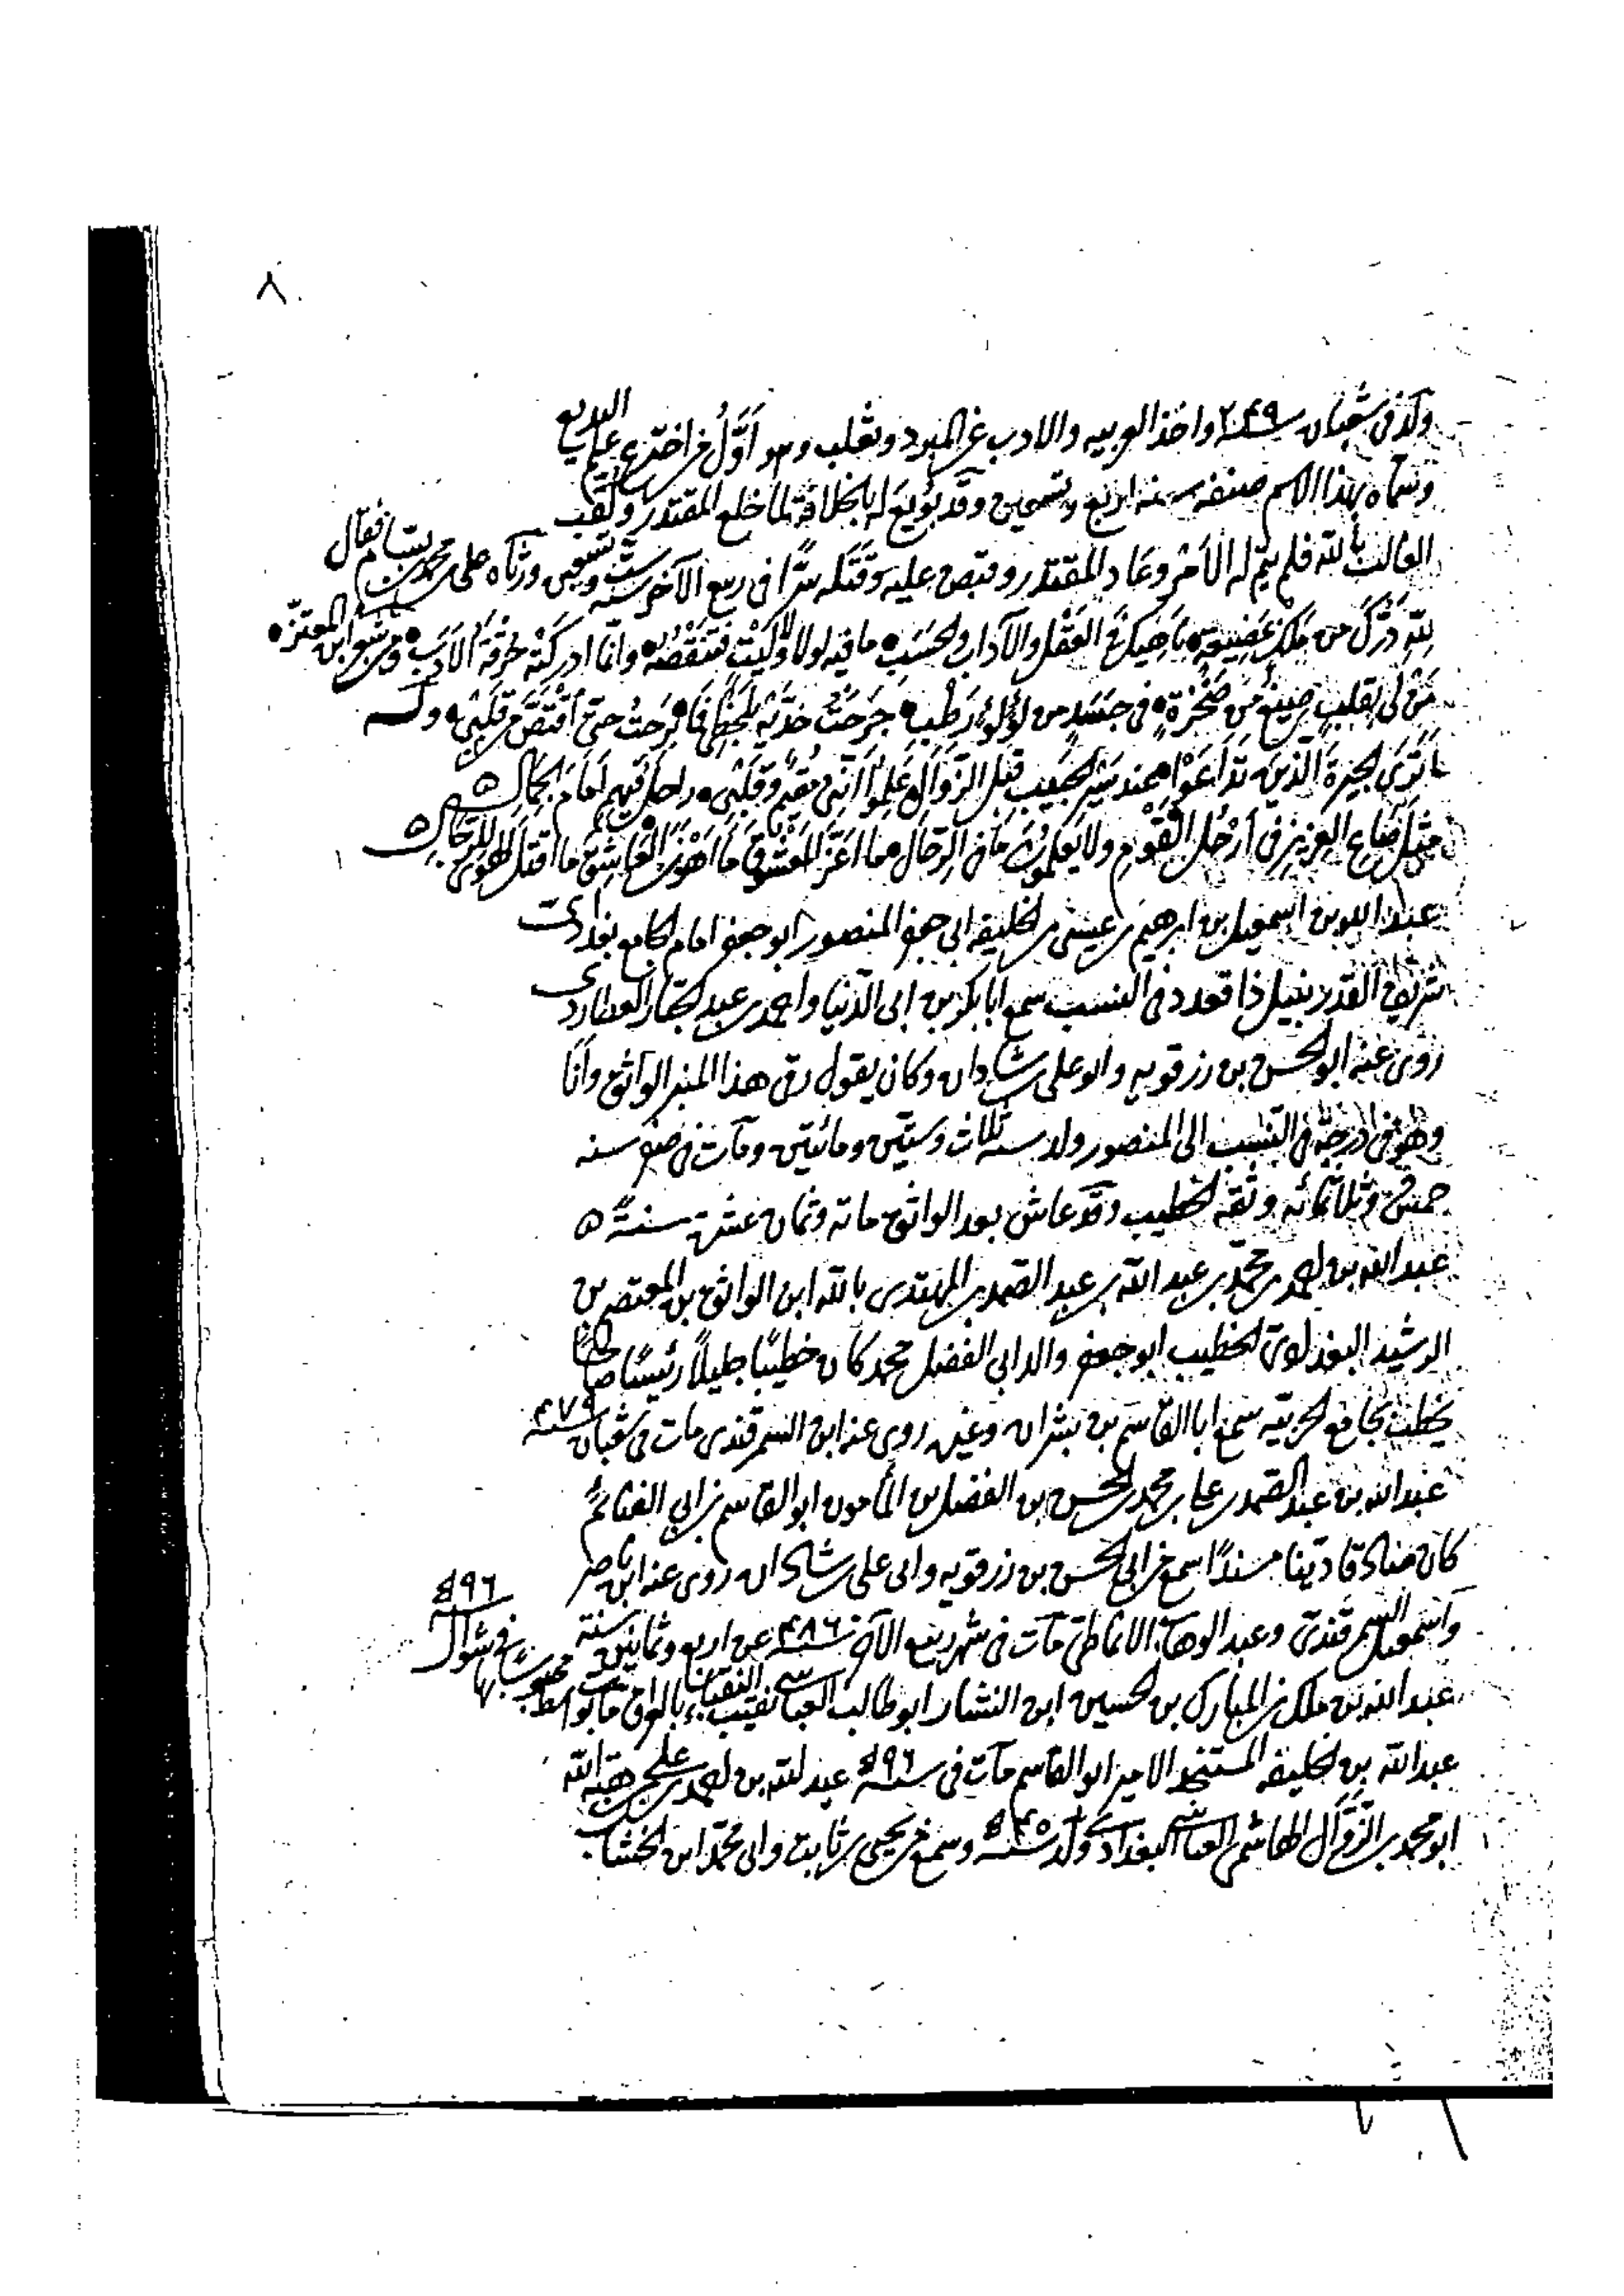 ٨
ولد في شعبان سنة ٢٤٩ واخذ العربيه والادب عن المبرد وثعلب وهو أوّلُ من اخترع علم البديع
وسمّاه بهذا الاسم صنفه سنه اربع وتسعين وقد بُويعَ له بالخلافة لما خلع المقتدر ولُقّب
الغالب بالله فلم يتم له الأمر وعاد المقتدر وقبض عليه وقتله سرًّا في ربيع الآخر سنة ست وتسعين ورثاه علي محمد بن بسام فقال
لله درّك من مَلِكٍ بمَضِيعةٍ ناهيك في العقل والآداب والحسب ما فيه لولا ولا ليت فتنقصه وانما ادركته حرفة الأدب ومن شعر ابن المعتز
مَن لي بقلبٍ صيغ من صخرةٍ في جسدٍ من لؤلؤٍ رطب جرحت خدّيه بلحظي فما برحت حتى اقتصّ من قلبي وله
ما ترى الجيرة الذين تداعوا عند سير الحبيب قبل الزوال علموا أنني مقيم وقلبي راحل فيهم أمام الجمال
مثل صاع العزيز في أرحل القوم ولا يعلمون ما في الرحال ما اعزّ المعشوق ما أهون العاشق ما اقتل الهوى للرجال
عبد الله بن اسمعيل بن ابرهيم بن عيسى بن الخليفه ابي جعفر المنصور ابو جعفر امام الجامع ببغداد
شريف القدر نبيل ذا قعدد في النسب سمع ابا بكر بن ابي الدنيا واحمد بن عبد الجبار العطاردي
روى عنه ابو الحسن بن رزقويه وابو علي بن شاذان وكان يقول رقى هذا المنبر الواثق وأنا
وهو في درجة في النسب الى المنصور ولد سنة ثلاث وستين ومائتين ومات في صفر سنه
خمسين وثلاثمائه وثقه الخطيب وقد عاش بعد الواثق مائه وثمان عشرة سنة
عبد الله بن احمد بن محمد بن عبد الله بن عبد الصمد بن المهتدي بالله ابن الواثق بن المعتصم بن
الرشيد البغدادي الخطيب ابو جعفر والد ابي الفضل محمد كان خطيبًا جليلًا رئيسًا صالحًا
يخطب بجامع الحربيه سمع ابا القاسم بن بشران وغيره روى عنه ابن السمرقندي مات في شعبان سنة ٤٧٩
عبد الله بن عبد الصمد بن علي بن محمد بن الحسن بن الفضل بن المأمون ابو القاسم بن ابي الغنائم
كان صادقا دينا مسندًا سمع من ابي الحسن بن رزقويه وابي علي بن شاذان روى عنه ابن ناصر
واسمعيل السمرقندي وعبد الوهاب الانماطي مات في شهر ربيع الآخر سنة ٤٨٦ عن اربع وثمانين سنة
عبد الله بن ملك بن المبارك بن الحسين ابن النشار ابو طالب العباسي نقيب النقباء بالعراق مات بواسط محبوسا بها في شوال ٥٩٦
عبد الله بن الخليفه المستنجد الامير ابو القاسم مات في سنة ٥٩٦ عبد الله بن احمد بن علي بن هبة الله
ابو محمد بن الزوال الهاشمي العباسي البغدادي ولد سنة ٥٤٥ وسمع من يحيى بن ثابت وابي محمد ابن الخشاب